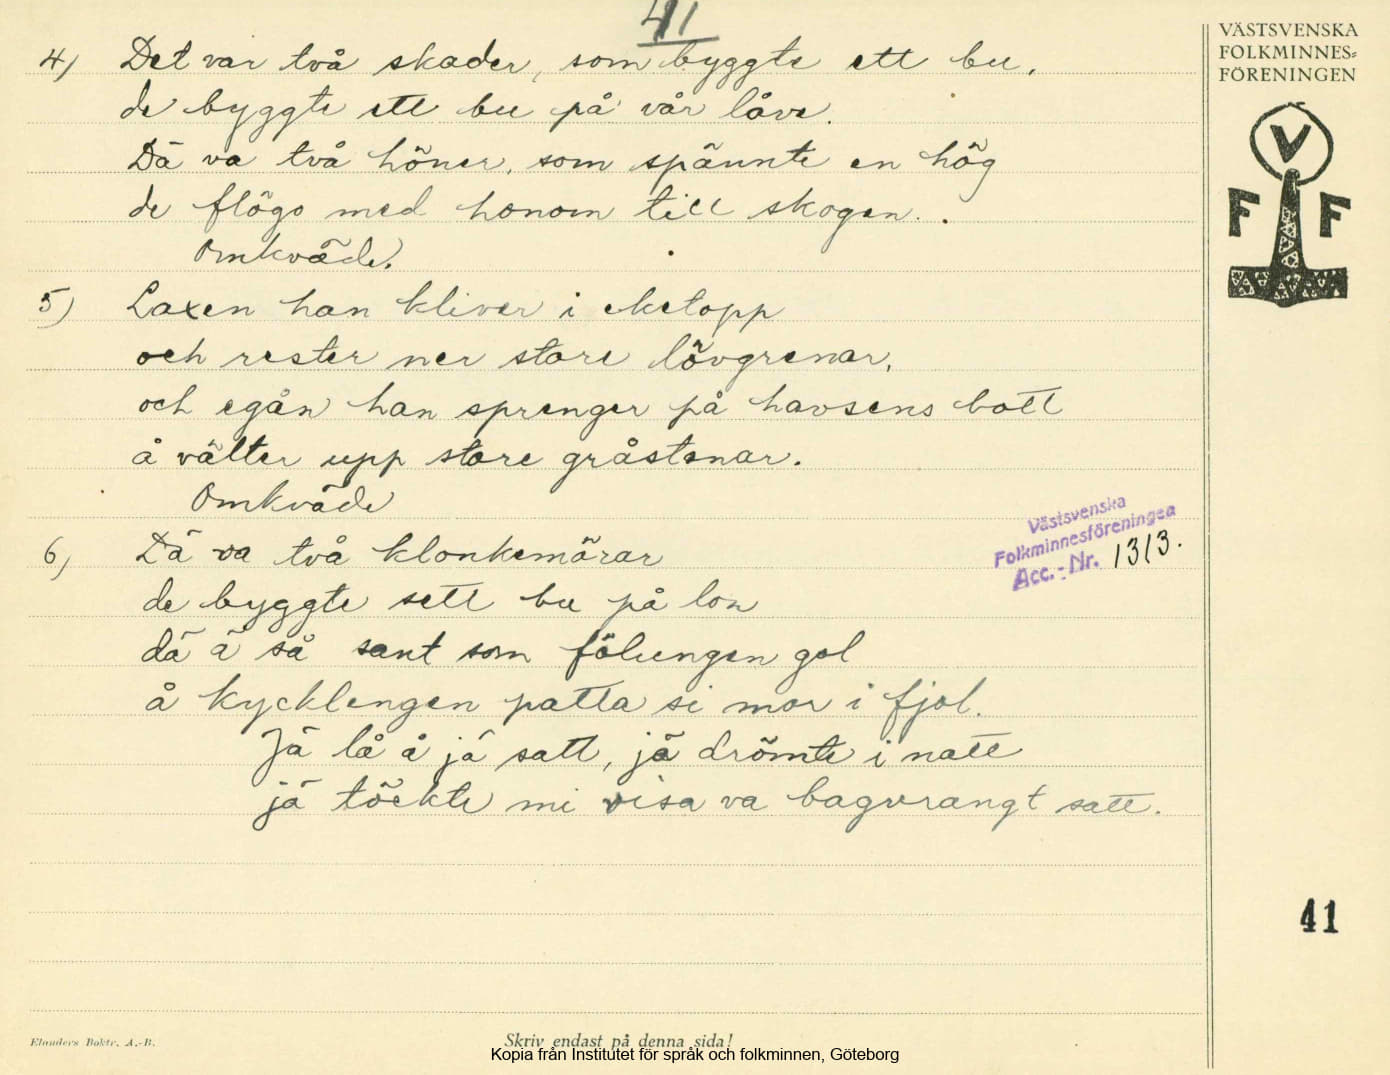 41
VÄSTSVENSKA
FOLKMINNES=
FÖRENINGEN
V
F F
4) Det var två skader, som byggte ett bu,
de byggte ett bu på vår låve.
Dä va två höner, som spännte en hög
de flögo med honom till skogen.
Omkväde.
5) Laxen han kliver i eketopp
och rester ner store lövgrenar,
och egån han sprenger på havsens bott
å välter upp store gråstenar.
Omkväde
6) Dä va två klonkemärar
de byggte sett bu på lon
dä ä så sant som fölungen gol
å kycklengen patta si mor i fjol.
Jä lå å jä satt, jä drömte i natt
jä töckte mi visa va bagvrangt satt.
Västsvenska
Folkminnesföreningen
Acc. - Nr. 1313.
41
Elanders Boktr. A.-B.
Skriv endast på denna sida!
Kopia från Institutet för språk och folkminnen, Göteborg